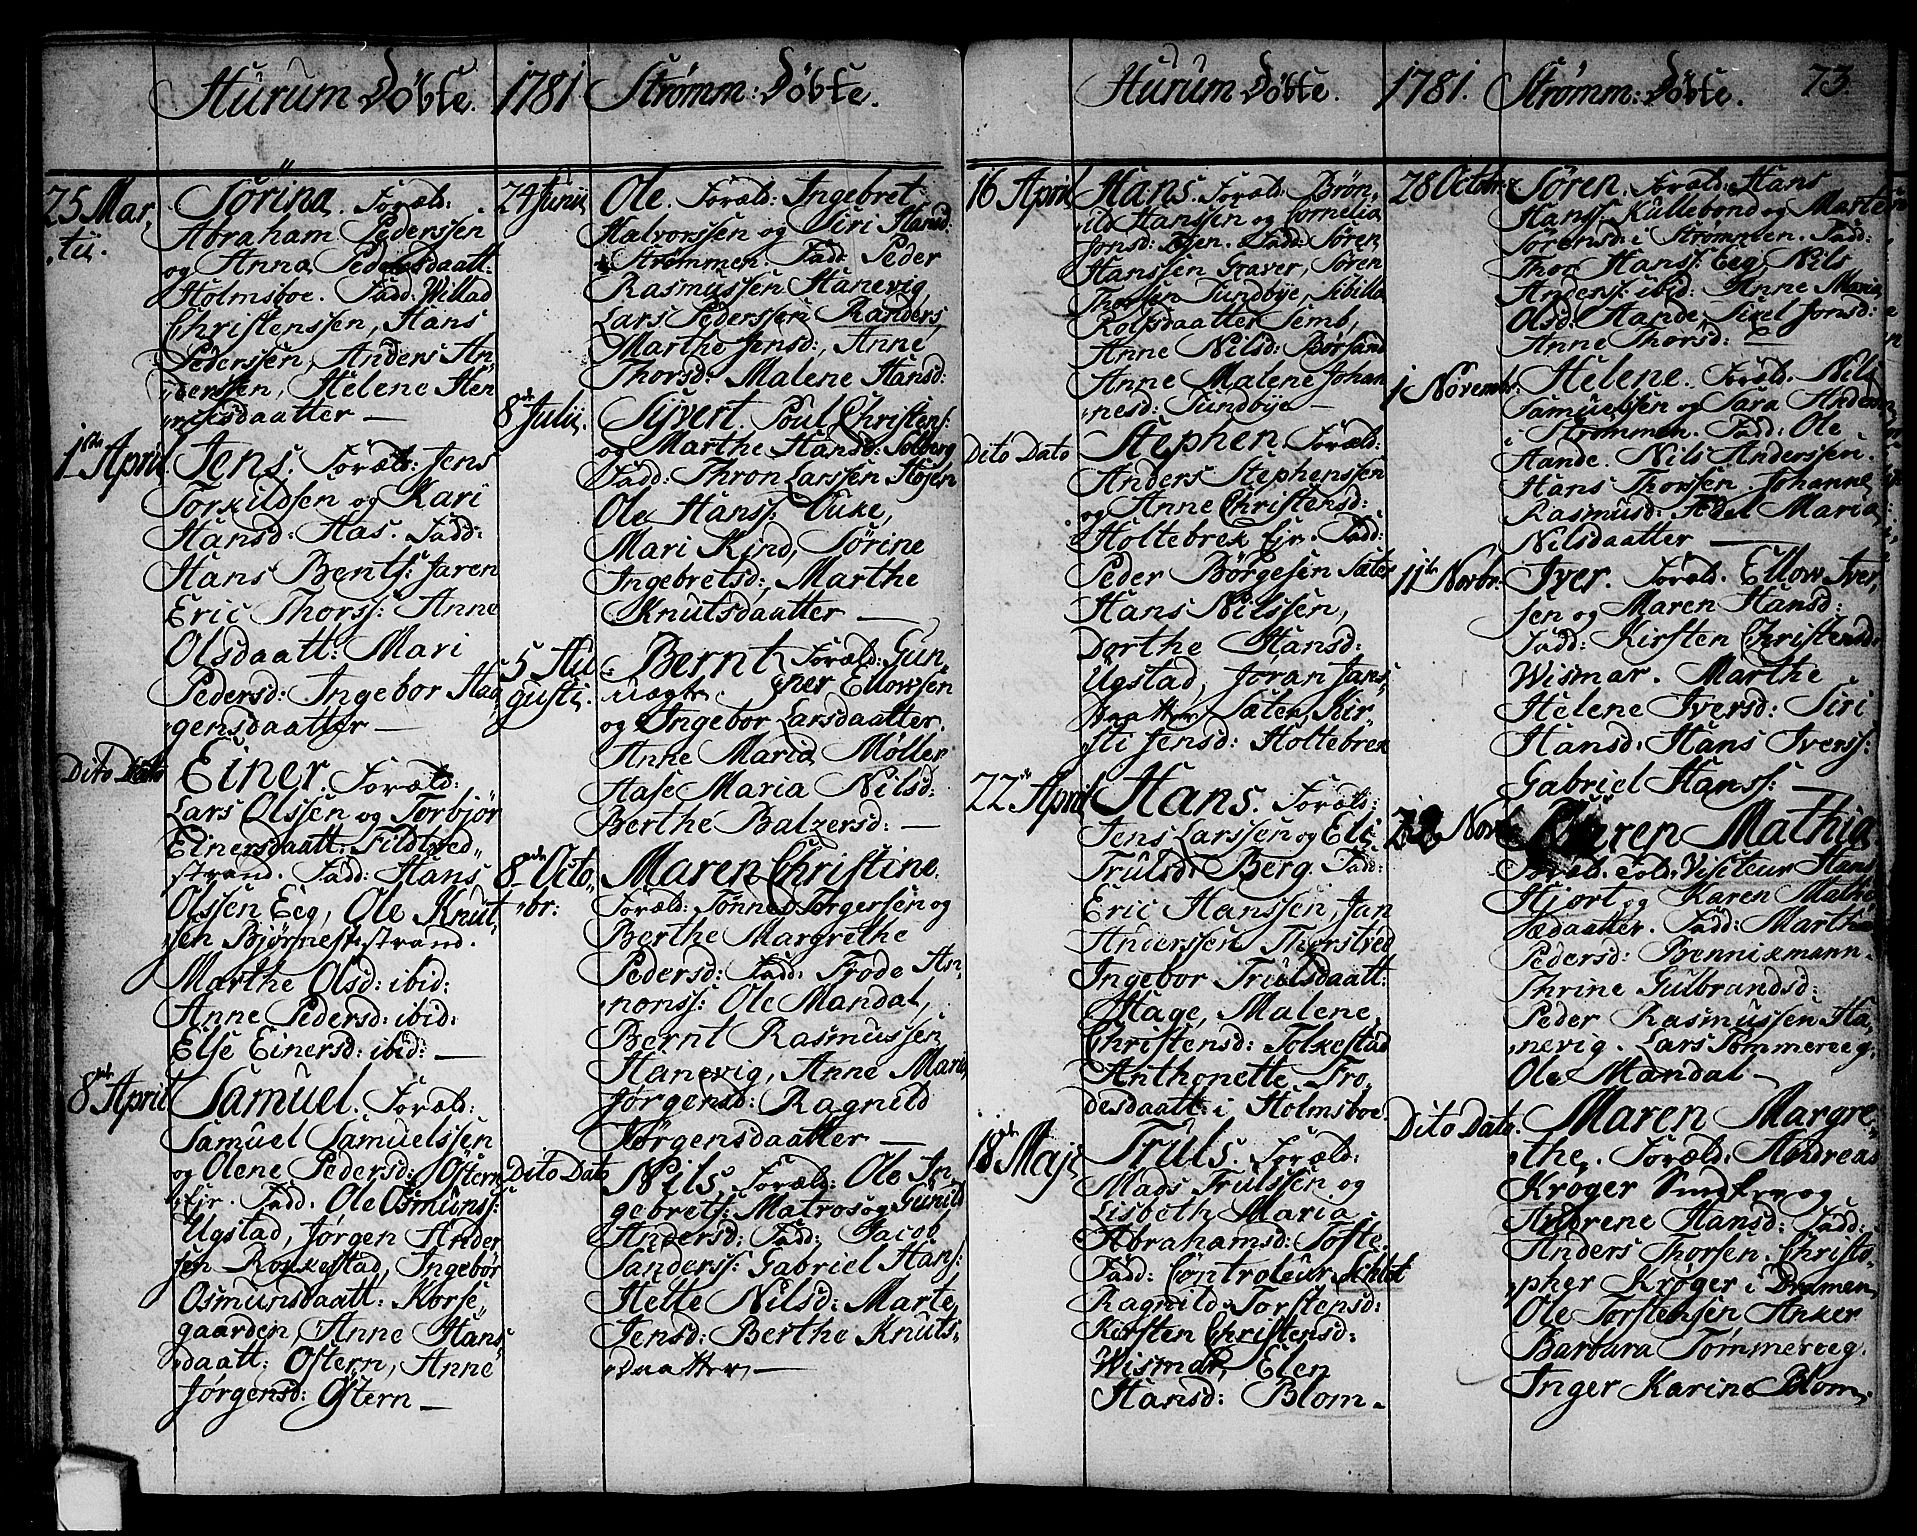 Hurum Döbte. 1781 Strømm: Döbte.
25 Mar,
tii.
Sörina. Foræld:
Abraham Pederssen
og Anna Pedersdaatt:
Holmsboe. Fadd: Willad
Christenssen, Hans
Pederssen, Anders An,
derssen, Helene Hen
richsdaatter —
1ste April
Jens. Foræld: Jens
Torkildsen og Kari
Hansd: Has. Fadd:
Hans Bents: Jaren
Eric Thorss: Anne
Olsdaatt: Mari
Pedersd: Ingebor Haa
gensdaatter —
Dito Dato
Einer. Foræld:
Lars Olssen og Torbjör
Einersdaatt: Fildtved
strand. Fadd: Hans
Olssen Eeg, Ole Knut
sen Bjørnest strand.
Marthe Olsd: ibid:
Anne Pedersd: ibid:
Else Einersd: ibid: —
8de April
Samuel. Foræld:
Samuel Samuelssen
og Olene Pedersd: Östern
Ejr. Fadd. Ole Osmunss:
Ugstad, Jørgen Ander
sen Roxkestad, Ingebör
Osmunsdaatt: Korse
gaarden, Anne Hans
daatt: Ostern, Anne
Jørgensd: Östern —
24 Junii
Ole. Foræld: Ingebret
Halvorssen og Siri Hansd:
Strømmen. Fadd: Peder
Rasmussen Hanevig,
Lars Pederssen Randers,
Marthe Jensd:, Anne
Thorsd: Malene Hansd:
8de Julii.
Syvert. Poul Christens:
og Marthe Hansd: Solberg
Fadd: Thron Larssen Støsen
Ole Hanss: Tuke,
Mari Kind, Sörine
Ingebretsd:, Marthe
Knutsdaatter —
5 Au
gusti.
Bernt Foræld: Gun
uægte. ner Ellowsen
og Ingebor Larsdaatter.
Anne Maria Møller
Hase Maria Nilsd:
Berthe Balzersd: —
8de Octo
br:
Maren Christine.
Foræld: Tönnes Torgersen og
Berthe Margrethe
Pedersd: Fadd: Frode An
nonss: Ole Mandal,
Bernt Rasmussen
Hanevig, Anne Marie
Jørgensd: Ragnild
Jørgensdaatter —
Dito Dato
Nils, Foræld: Ole In
gebrets: Matros og Gunild
Andersd: Fadd: Jacob
Sanderss: Gabriel Hans:
Hette Nilsd: Marte,
Jensd: Berthe Knuts
daatter, —
Hurum Döbte. 1781. Strømm: Döbte. 73.
16 April
Hans. Foræld: Brön,
ild Hanssen og Cornelia
Jonsd: Fadd: Sören
Hanssen Graver, Sören
Thorssen Sundbye, Sibilla
Rolfsdaatter Semb,
Anne Nilsd:Borsand
Anne Malene Johan
nesd: Sundbye —
Dito Dato
Stephen. Foræld:
Anders Stephenssen
og Anne Christensd:
Holtebrex Ejr. Fadd:
Peder Börgesen Sæter
Hans Nilssen,
Dorthe Hansd:
Ugstad, Jøran Jans
daatter Sæter, Kir
sti Jensd: Holtebrex
22 April
Hans. Foræld:
Jens Larssen og Eli
Trulsd: Berg. Fadd:
Eric Hanssen, Jan
Anderssen Thorstved
Ingebor Trulsdaatt:
Hage, Malene
Christensd: Tolkestad
Anthonette Fro
desdaatt: i Holmsboe.
18de Maji
Truls. Foræld:
Mads Trulssen og
Lisbeth Maria
Abrahamsd: Tofte.
Fadd: Controleur Schlot
Ragnild Torstensd:
Kirsten Christensd:
Wismar, Elen
Hansd: Blom —
28 Octobr:
Søren. Foræld: Hans
Hanss: Kullebond og Marte
Sörensd: i Strømmen. Fadd:
Thor Hanss: Eeg, Nils
Anderss: ibid: Anne Maria
Olsd: Sande, Sixel Jonsd:
Anne Thorsd: —
1 Novembr:
Helene. Foræld. Nils
Samuelssen og Sara Andersd
Strømmen. Fadd: Ole
Sande. Nils Anderssen.
Hans Thorssen, Johanne
Rasmusd: Adel Maria
Nilsdaatter —
11te Novbr.
Iver. Foræld. Ellow Iver,
sen og Maren Hansd:
Fadd: Kirsten Christensd:
Wismar. Marthe
Helene Iversd: Siri
Hansd: Hans Iverss:
Gabriel Hanss: —
Nov
Karen Mathia
Foræld. Told. Visiteur Hans
Hjort og Karen Mathi
asdaatter. Fadd: Marthe
Pedersd: Bennikmann.
Thrine Gulbrandsd:
Peder Rasmussen Ha
nevig. Lars Tommereeg.
Ole Mandal —
Dito Dato.
Maren Margre
the. Foræld: Andreas
Kröger og
Andrene Hansd: Fadd:
Anders Thorsen. Christo
pher Kröger i Dramen
Ole Torstensen Anker
Barbara Tømmereeg.
Inger Karine Blom,